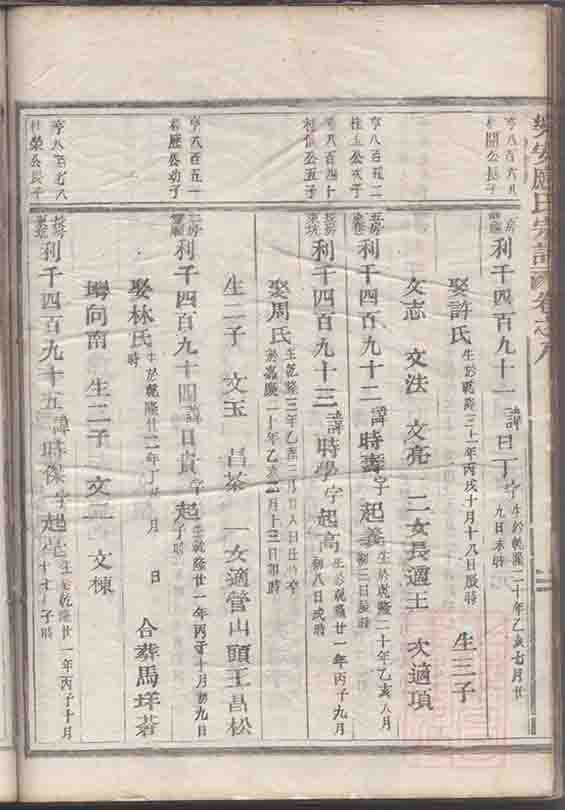 應氏宗譜 卷之八
亨八百六八
開公長子
利千四百九十一 諱日丁 字 生於乾隆二十年乙亥七月廿九日未時
娶許氏 生於乾隆三十一年丙戌十月十八日辰時 生三子
文志 文法 文亮 二女長適王 次適項
亨八百五二
桂玉公次子
利千四百九十二 諱時壽 字起義 生於乾隆二十年乙亥八月初三日辰時
亨八百四十
利 公五子
利千四百九十三 諱時學 字起高 生於乾隆廿一年丙子九月初八日戌時
娶周氏 生乾隆三年乙 三月廿八日丑時 於嘉慶二十年乙亥 月十三日卯時
生二子 文玉 昌茶 一女適管山頭王昌松
亨八百五十一
應公幼子
利千四百九十四 諱日貴 字起 生乾隆廿一年丙子十月初九日子時
娶林氏 生於乾隆廿二年丁 月 日 時 合葬馬垟
向南 生二子 文 文棟
亨八百七八
桂榮公長子
利千四百九十五 諱時傑 字起 生於乾隆廿一年丙子十月 十 子時